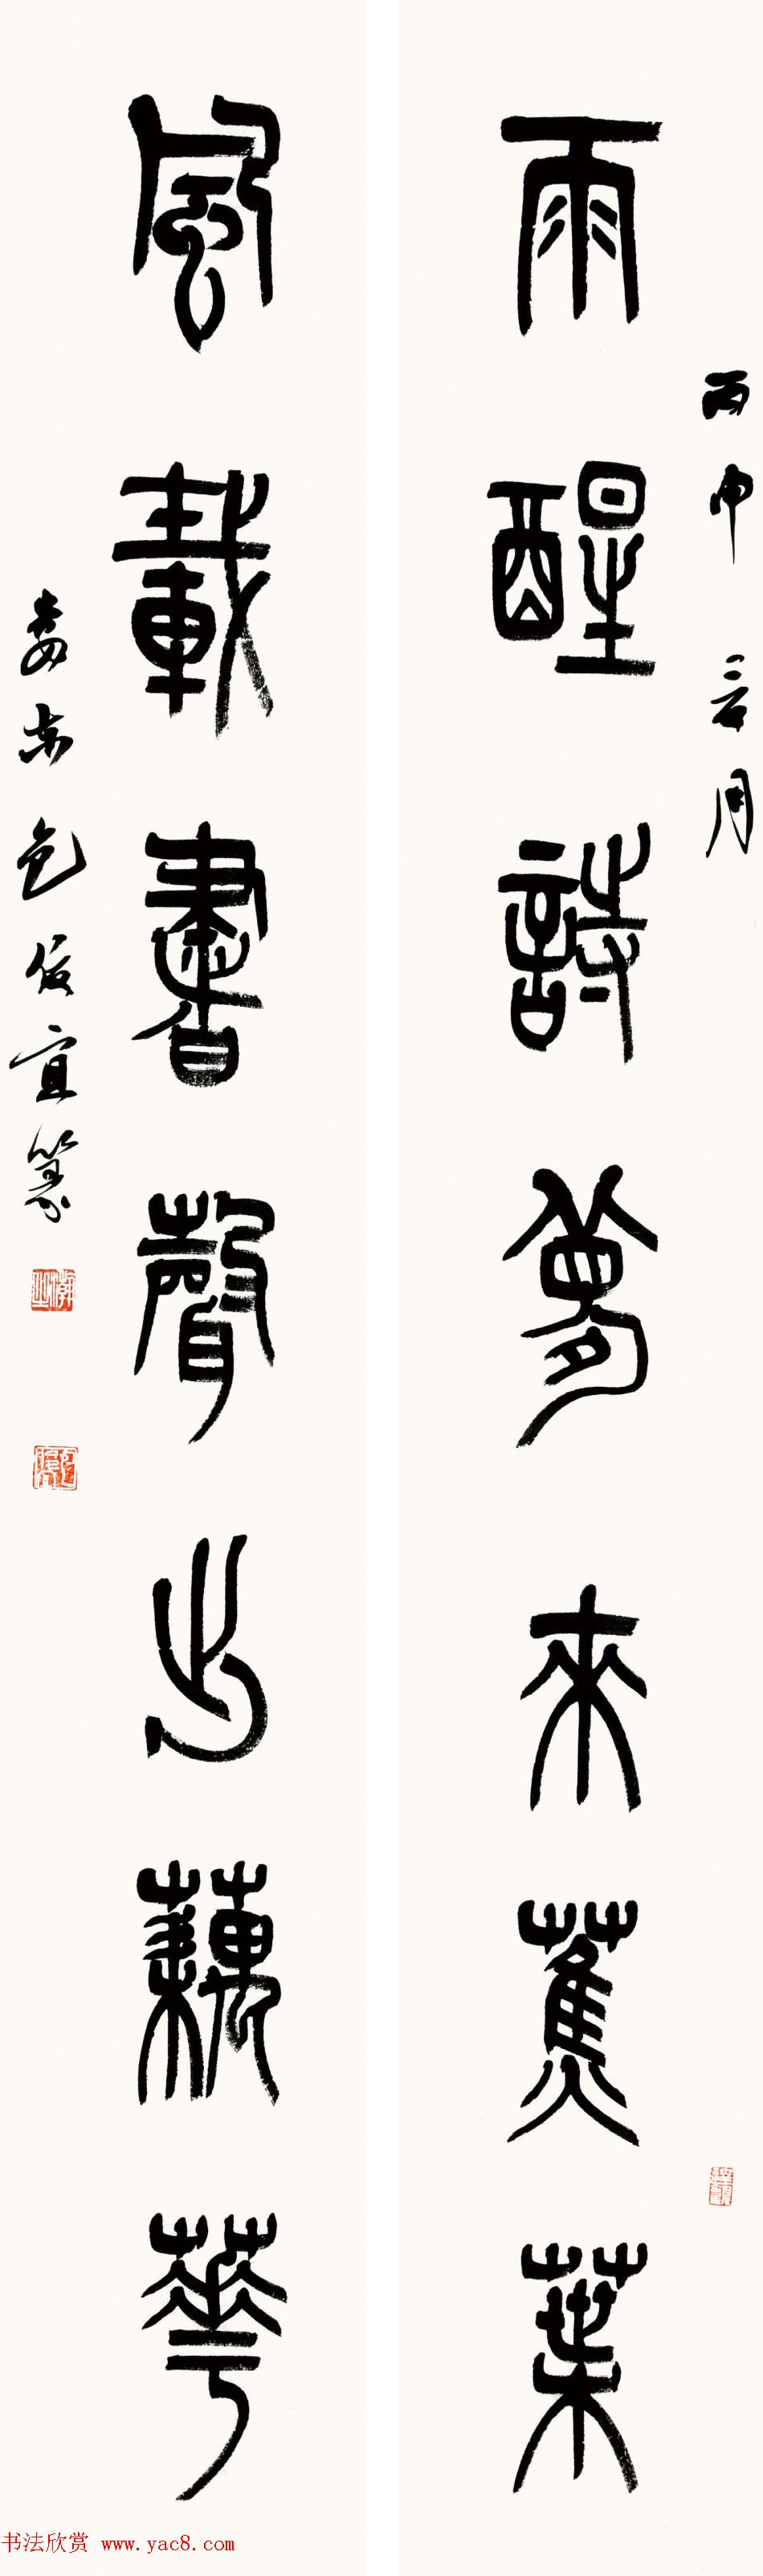 丙申
雨醒詩夢來蕉葉
風載書聲出藕華
婁東包俊宜篆
书法欣赏 www.yac8.com